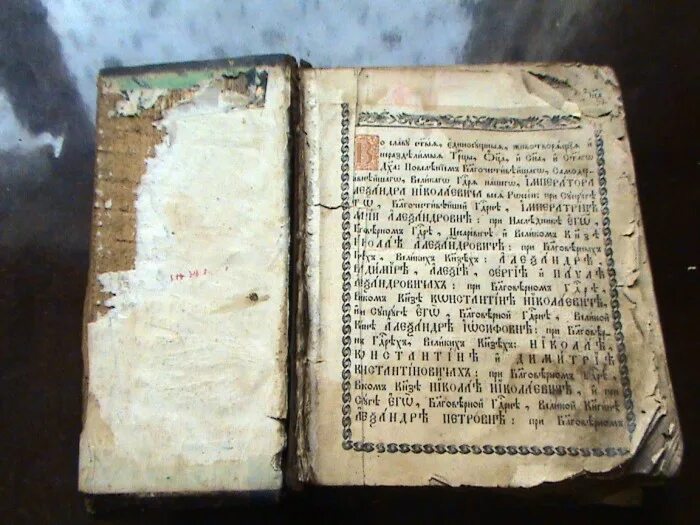 Во славу ст҃ыѧ, є҆диносꙋщныѧ, животворѧщїѧ и҆
нераздѣлимыѧ Трⷪ҇цы, Ѻ҆ц҃а, и҆ Сн҃а, и҆ Ст҃агѡ
Дх҃а: Повелѣнїемъ Бл҃гочестивѣйшагѡ, Самодер-
Великагѡ Гдⷭ҇рѧ нашегѡ, І҆МПЕРАТОРА
АЛЕѮАНДРА НІКОЛАЕВИЧА всеѧ Рѡссїи: при Сꙋпрꙋгѣ
Е҆ГѠ̀, Бл҃гочестивѣйшей Гдⷭ҇рнѣ, І҆МПЕРАТРИЦѢ
МАРІИ АЛЕѮАНДРОВНѢ: при Наслѣдникѣ Е҆ГѠ̀,
Бл҃говѣрномъ Гдⷭ҇рѣ, Цесаревичѣ и҆ Великомъ Кн҃зѣ
НІКОЛАѢ АЛЕѮАНДРОВИЧѢ: при Бл҃говѣрныхъ
Гдⷭ҇рѣхъ, Великихъ Кн҃зехъ: АЛЕѮАНДРѢ,
ВЛАДИМІРѢ, АЛЕѮІѢ, СЕРГІИ и҆ ПАѴЛѢ
АЛЕѮАНДРОВИЧАХЪ: при Бл҃говѣрномъ Гдⷭ҇рѣ,
Великомъ Кн҃зѣ КѠНСТАНТІНѢ НІКОЛАЕВИЧѢ,
при Сꙋпрꙋгѣ Е҆ГѠ̀, Бл҃говѣрной Гдⷭ҇рнѣ, Великой
АЛЕѮАНДРѢ І҆ѠСИФОВНѢ: при Бл҃говѣр-
Гдⷭ҇рѣхъ, Великихъ Кн҃зехъ: НІКОЛАѢ,
КѠНСТАНТІНѢ и҆ ДИМИТРІИ
КѠНСТАНТІНОВИЧАХЪ: при Бл҃говѣрномъ Гдⷭ҇рѣ,
Великомъ Кн҃зѣ НІКОЛАѢ НІКОЛАЕВИЧѢ, и҆ при
Сꙋпрꙋгѣ Е҆ГѠ̀, Бл҃говѣрной Гдⷭ҇рнѣ, Великой Кнѧгинѣ
АЛЕѮАНДРѢ ПЕТРОВНѢ: при Бл҃говѣрномъ